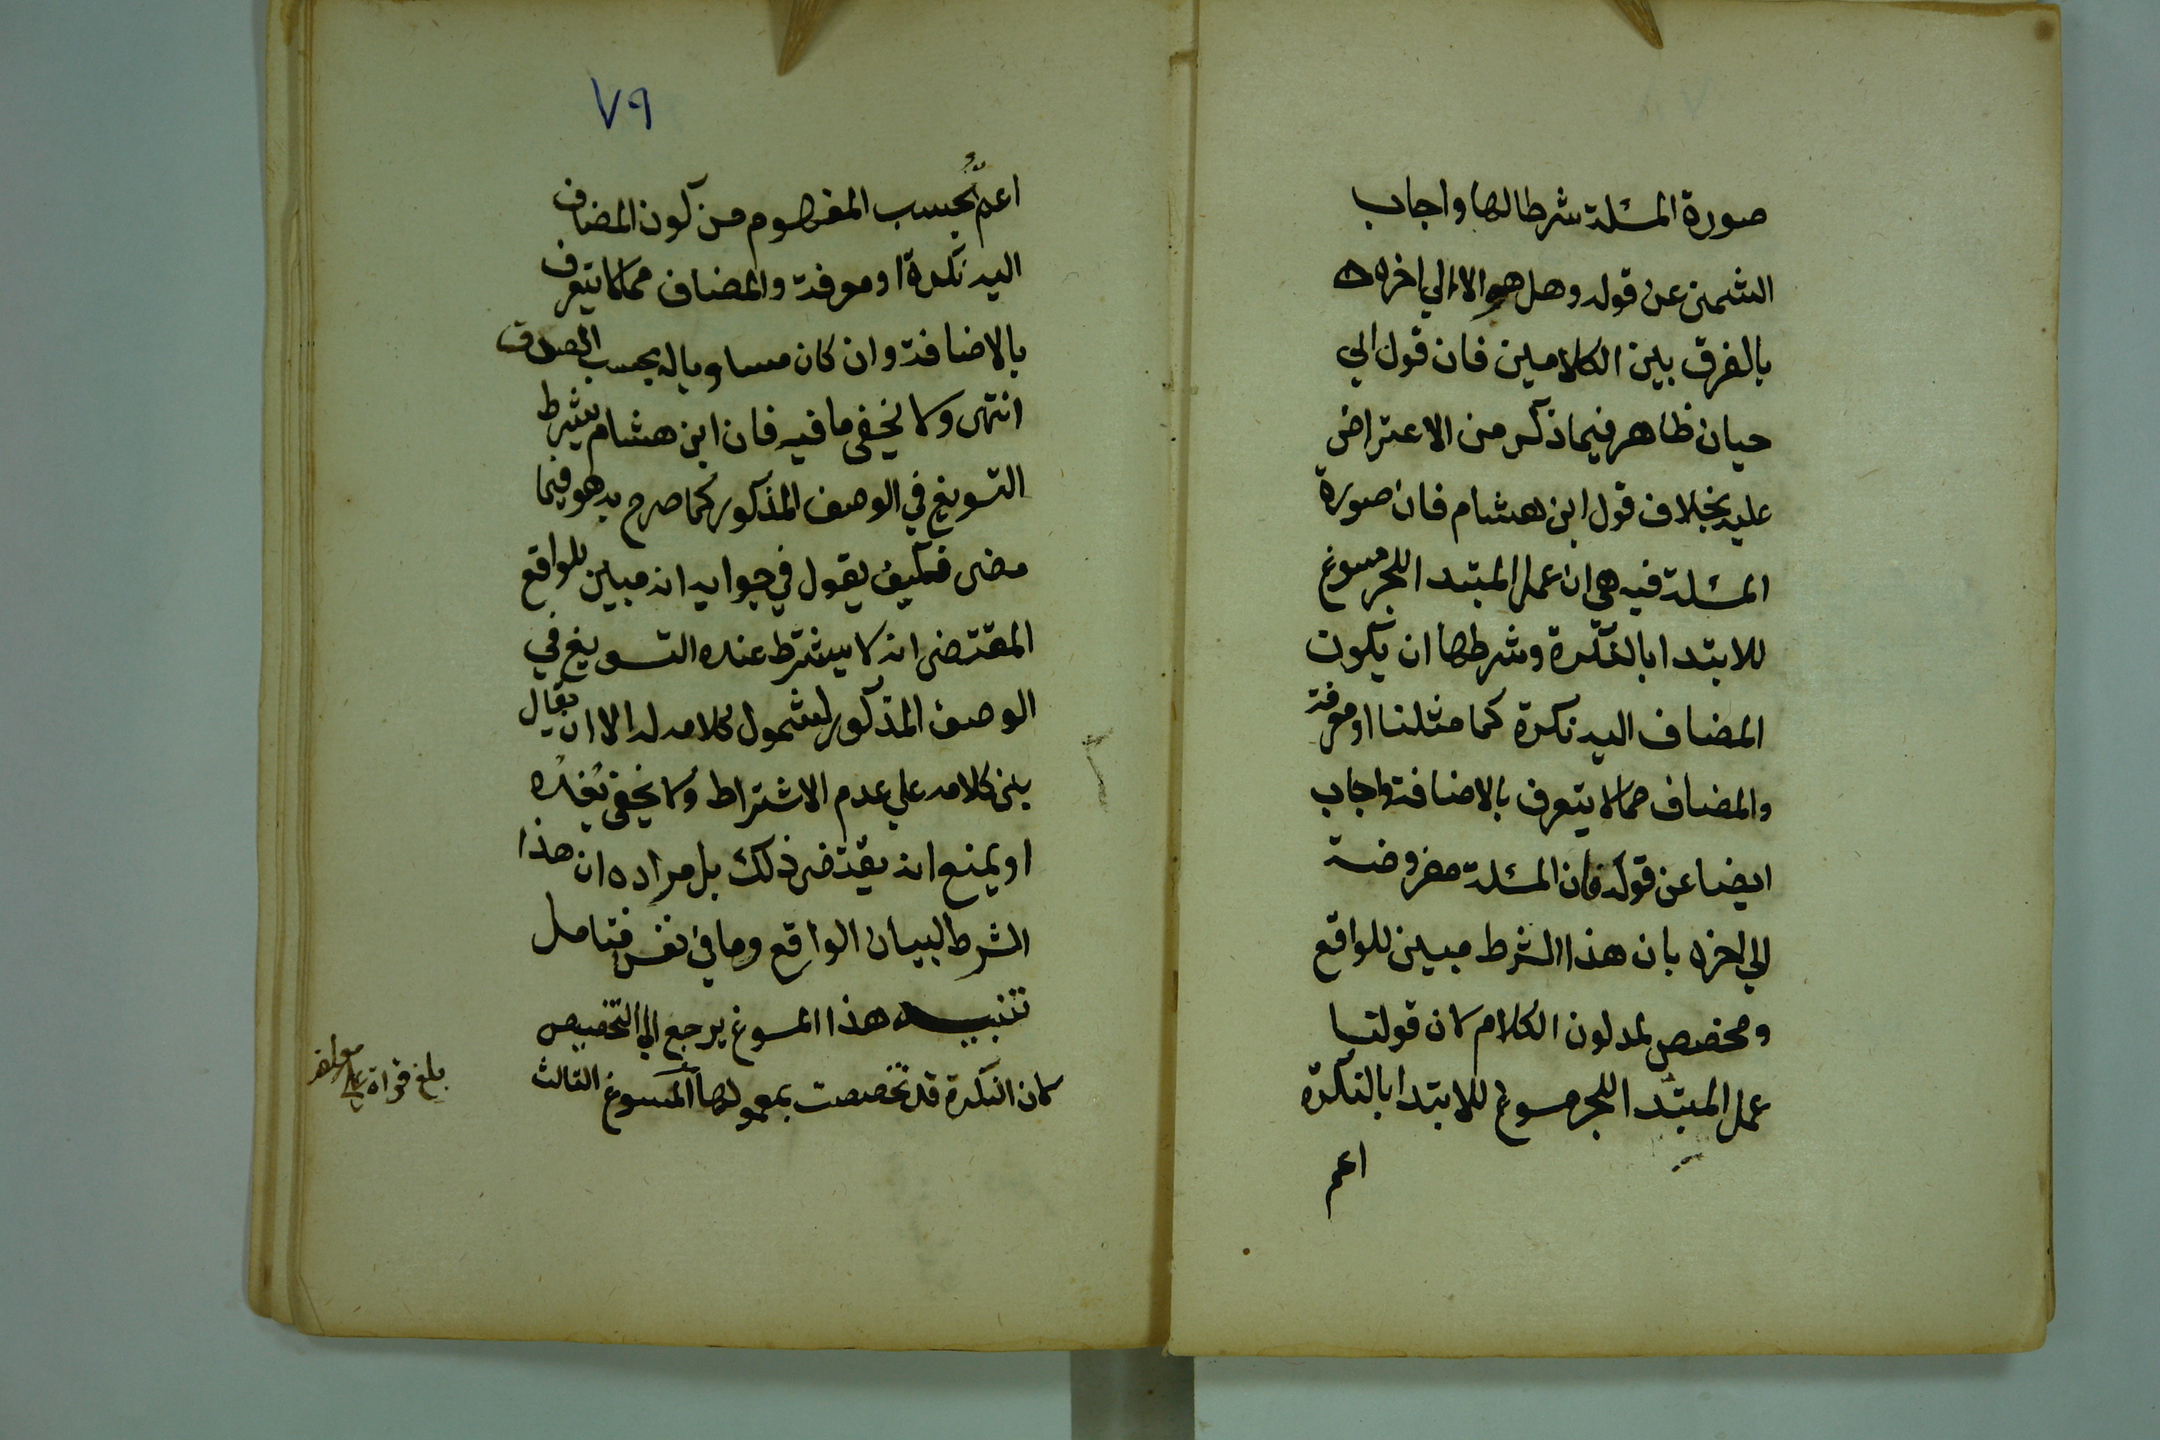 صورة المسئلة شرطا لها واجاب
الشمنى عن قوله وهل هو الا الي اخره
بالفرق بين الكلامين فان قول ابي
حيان ظاهر فيما ذكر من الاعتراض
عليه بخلاف قول ابن هشام فان صورة
المسئلة فيه هي ان عمل المبتدا الجر مسوغ
للابتدا بالنكرة وشرطها ان يكون
المضاف اليه نكرة كما مثلنا او معرفة
والمضاف مما لا يتعرف بالاضافة واجاب
ايضا عن قوله فان المسئلة مفروضة
الي اخره بان هذا الشرط مبين للواقع
ومخصص لمدلون الكلام لان قولنا
عمل المبتدا الجر مسوغ للابتدا بالنكرة
اعم
٧٩
اعم بحسب المفهوم من كون المضاف
اليه نكرة او معرفة والمضاف مما لا يتعرف
بالاضافة وان كان مساويا له بحسب الصدق
انتهى ولا يخفى ما فيه فان ابن هشام يشترط
التسويغ في الوصف المذكور كما صرح به هو فيما
مضى فكيف يقول في جوابه انه مبين للواقع
المقتضى انه لا يشترط عنده التسويغ في
الوصف المذكور لشمول كلامه له الا ان يقال
بنى كلامه علي عدم الاشتراط ولا يخفى بعده
او يمنع انه يقتضى ذلك بل مراده ان هذا
الشرط لبيان الواقع وما في نفس فتامل
تنبيه هذا المسوغ يرجع الي التخصيص
لان النكرة قد تخصصت بمعمولها المسوغ الثالث
بلغ قراة علي مولفه